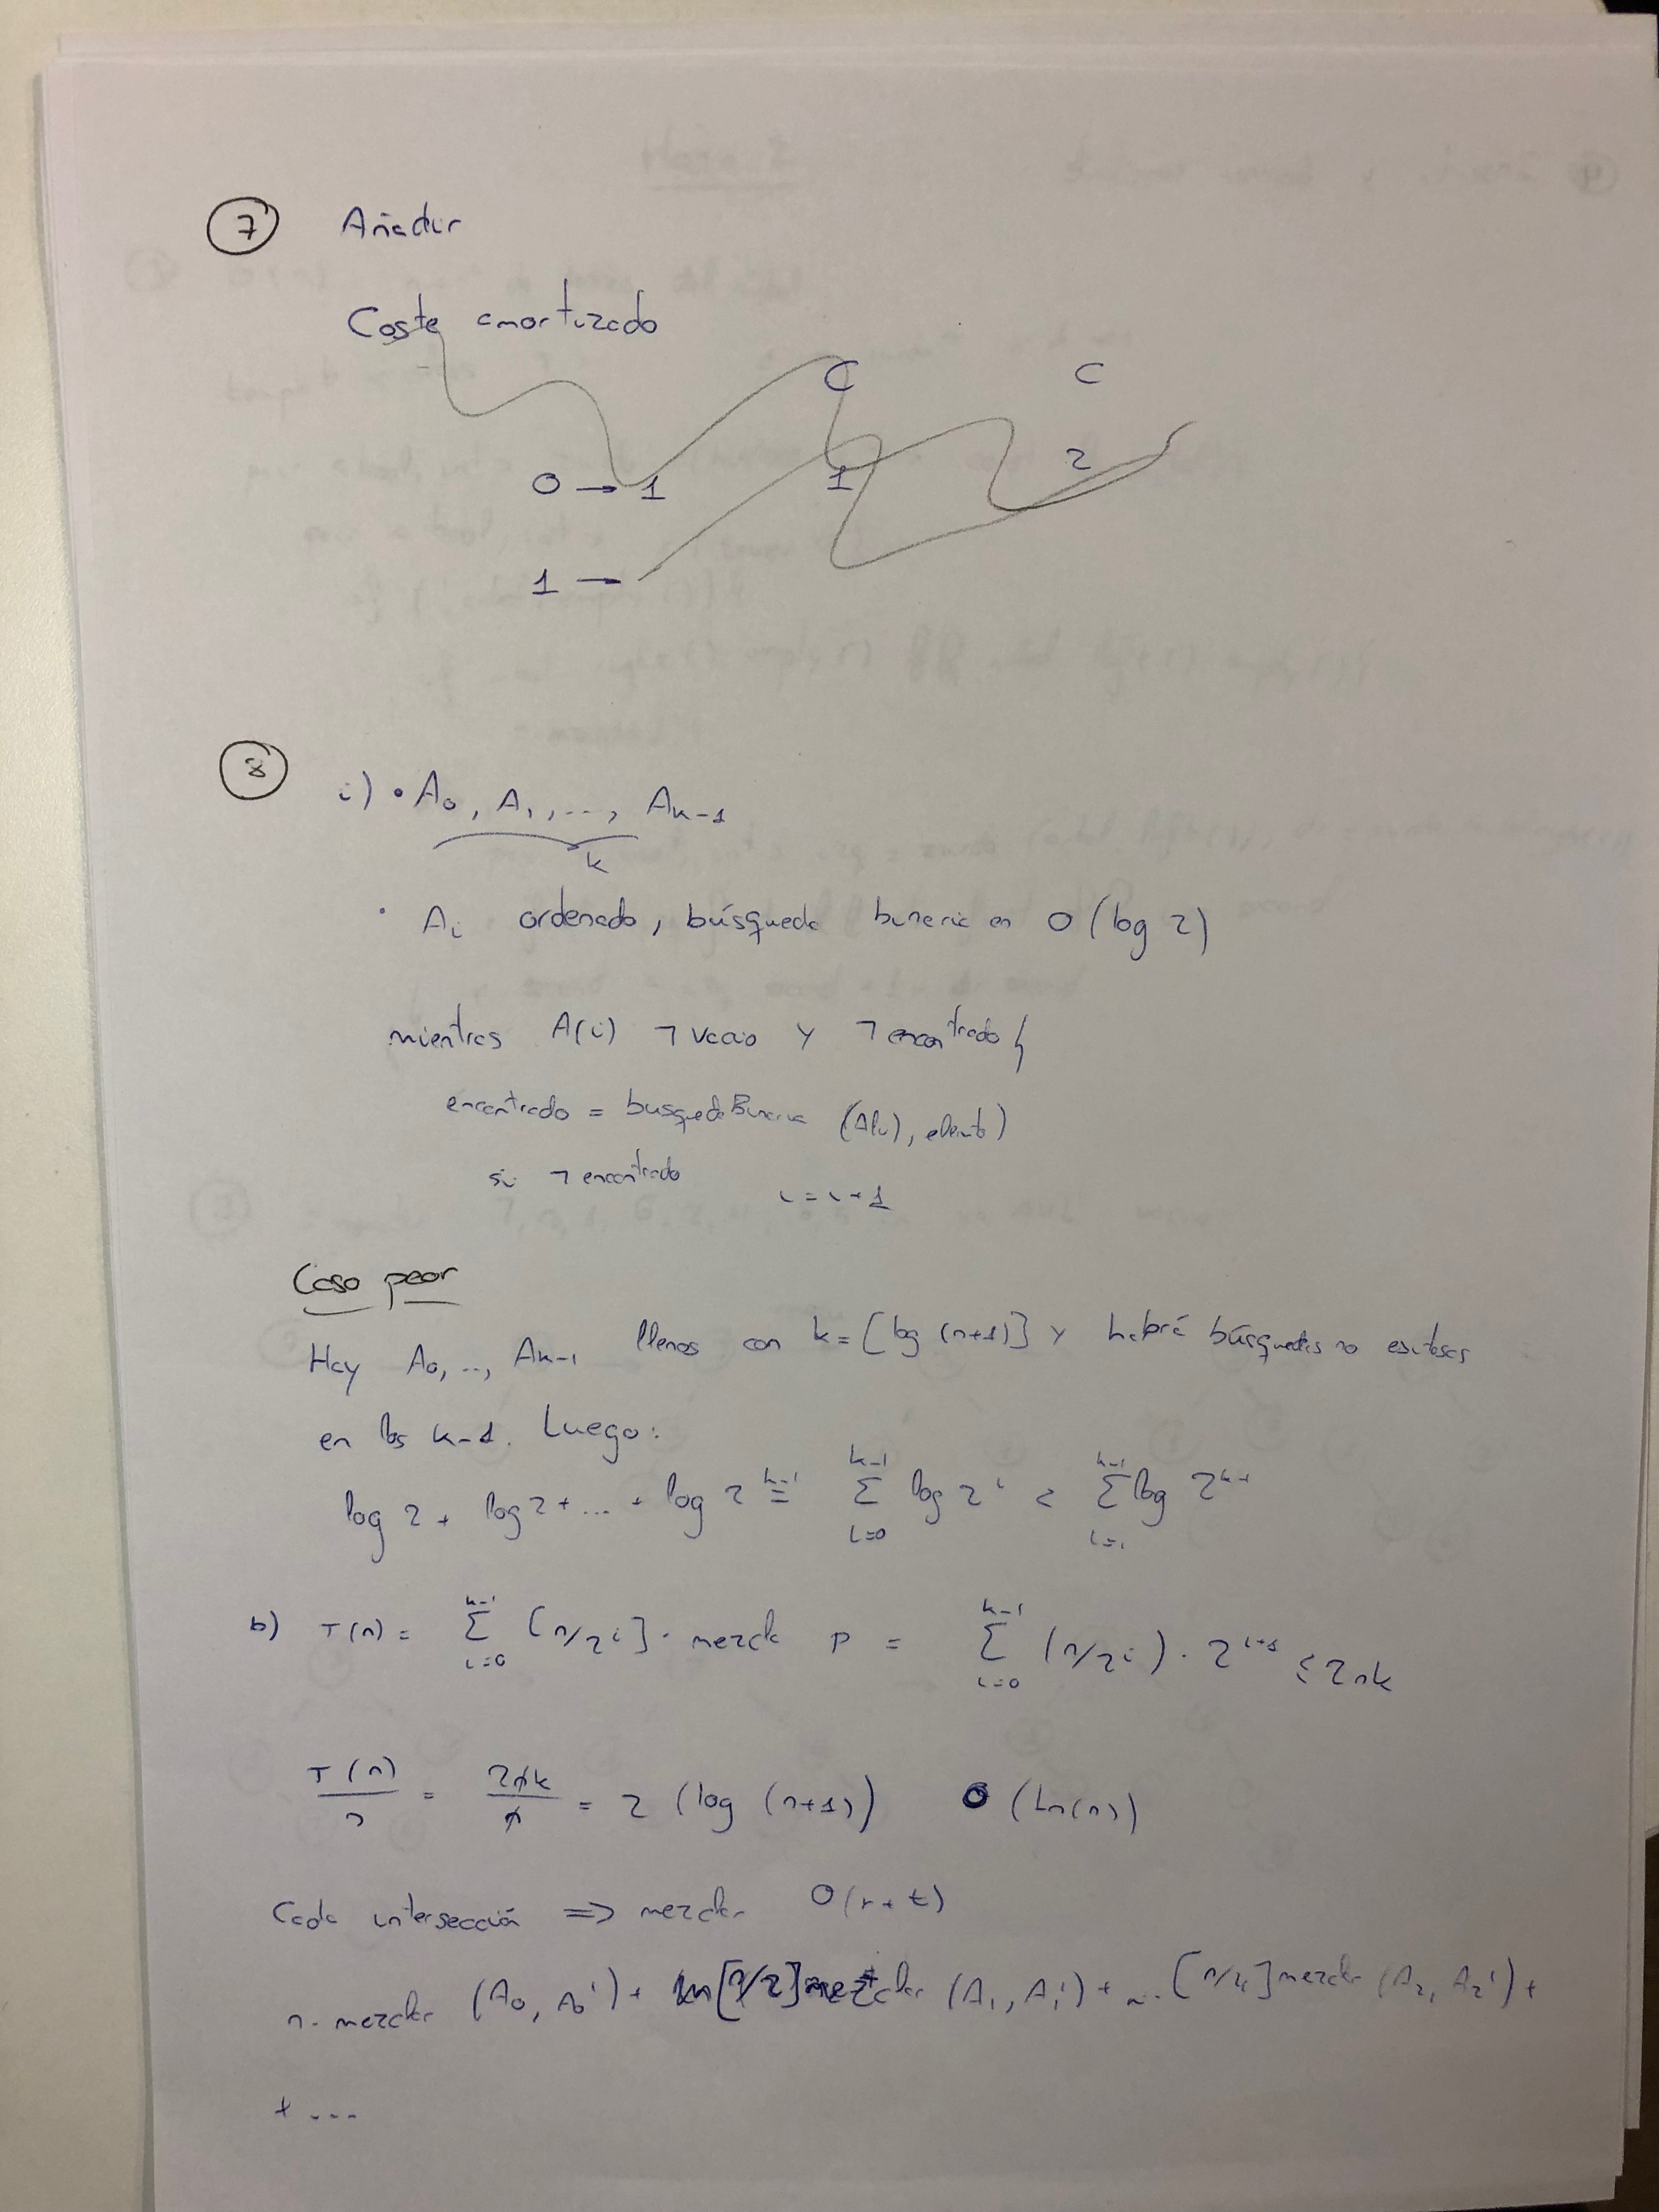 7 Añadir
Coste amortizado
C C
0 → 1 1 2
1 →
8 i) • A₀, A₁, ..., Aₖ₋₁
k
• Aᵢ ordenado, búsqueda binaria en O(log 2)
mientras A(i) ¬ vacio y ¬ encontrado {
encontrado = busquedaBinaria (A(i), elemto)
si ¬ encontrado i = i + 1
Caso peor
Hay A₀, .., Aₖ₋₁ llenos con k = [log (n+1)] y habrá búsquedas no exitosas
en los k-1. Luego:
log 2 + log 2 + ... + log 2ᵏ⁻¹ = Σᵢ₌₀ᵏ⁻¹ log 2ⁱ < Σᵢ₌₁ᵏ⁻¹ log 2ᵏ⁻¹
b) T(n) = Σᵢ₌₀ᵏ⁻¹ [n/2ⁱ] · mezcla P = Σᵢ₌₀ᵏ⁻¹ (n/2ⁱ) · 2ⁱ⁺¹ ≤ 2nk
T(n)/n = 2nk/n = 2 (log (n+1)) O(Ln(n))
Cada intersección => mezclar O(r+t)
n · mezclar (A₀, A₀') + [n/2] mezclar (A₁, A₁') + ... [n/4] mezclar (A₂, A₂') +
+ ...